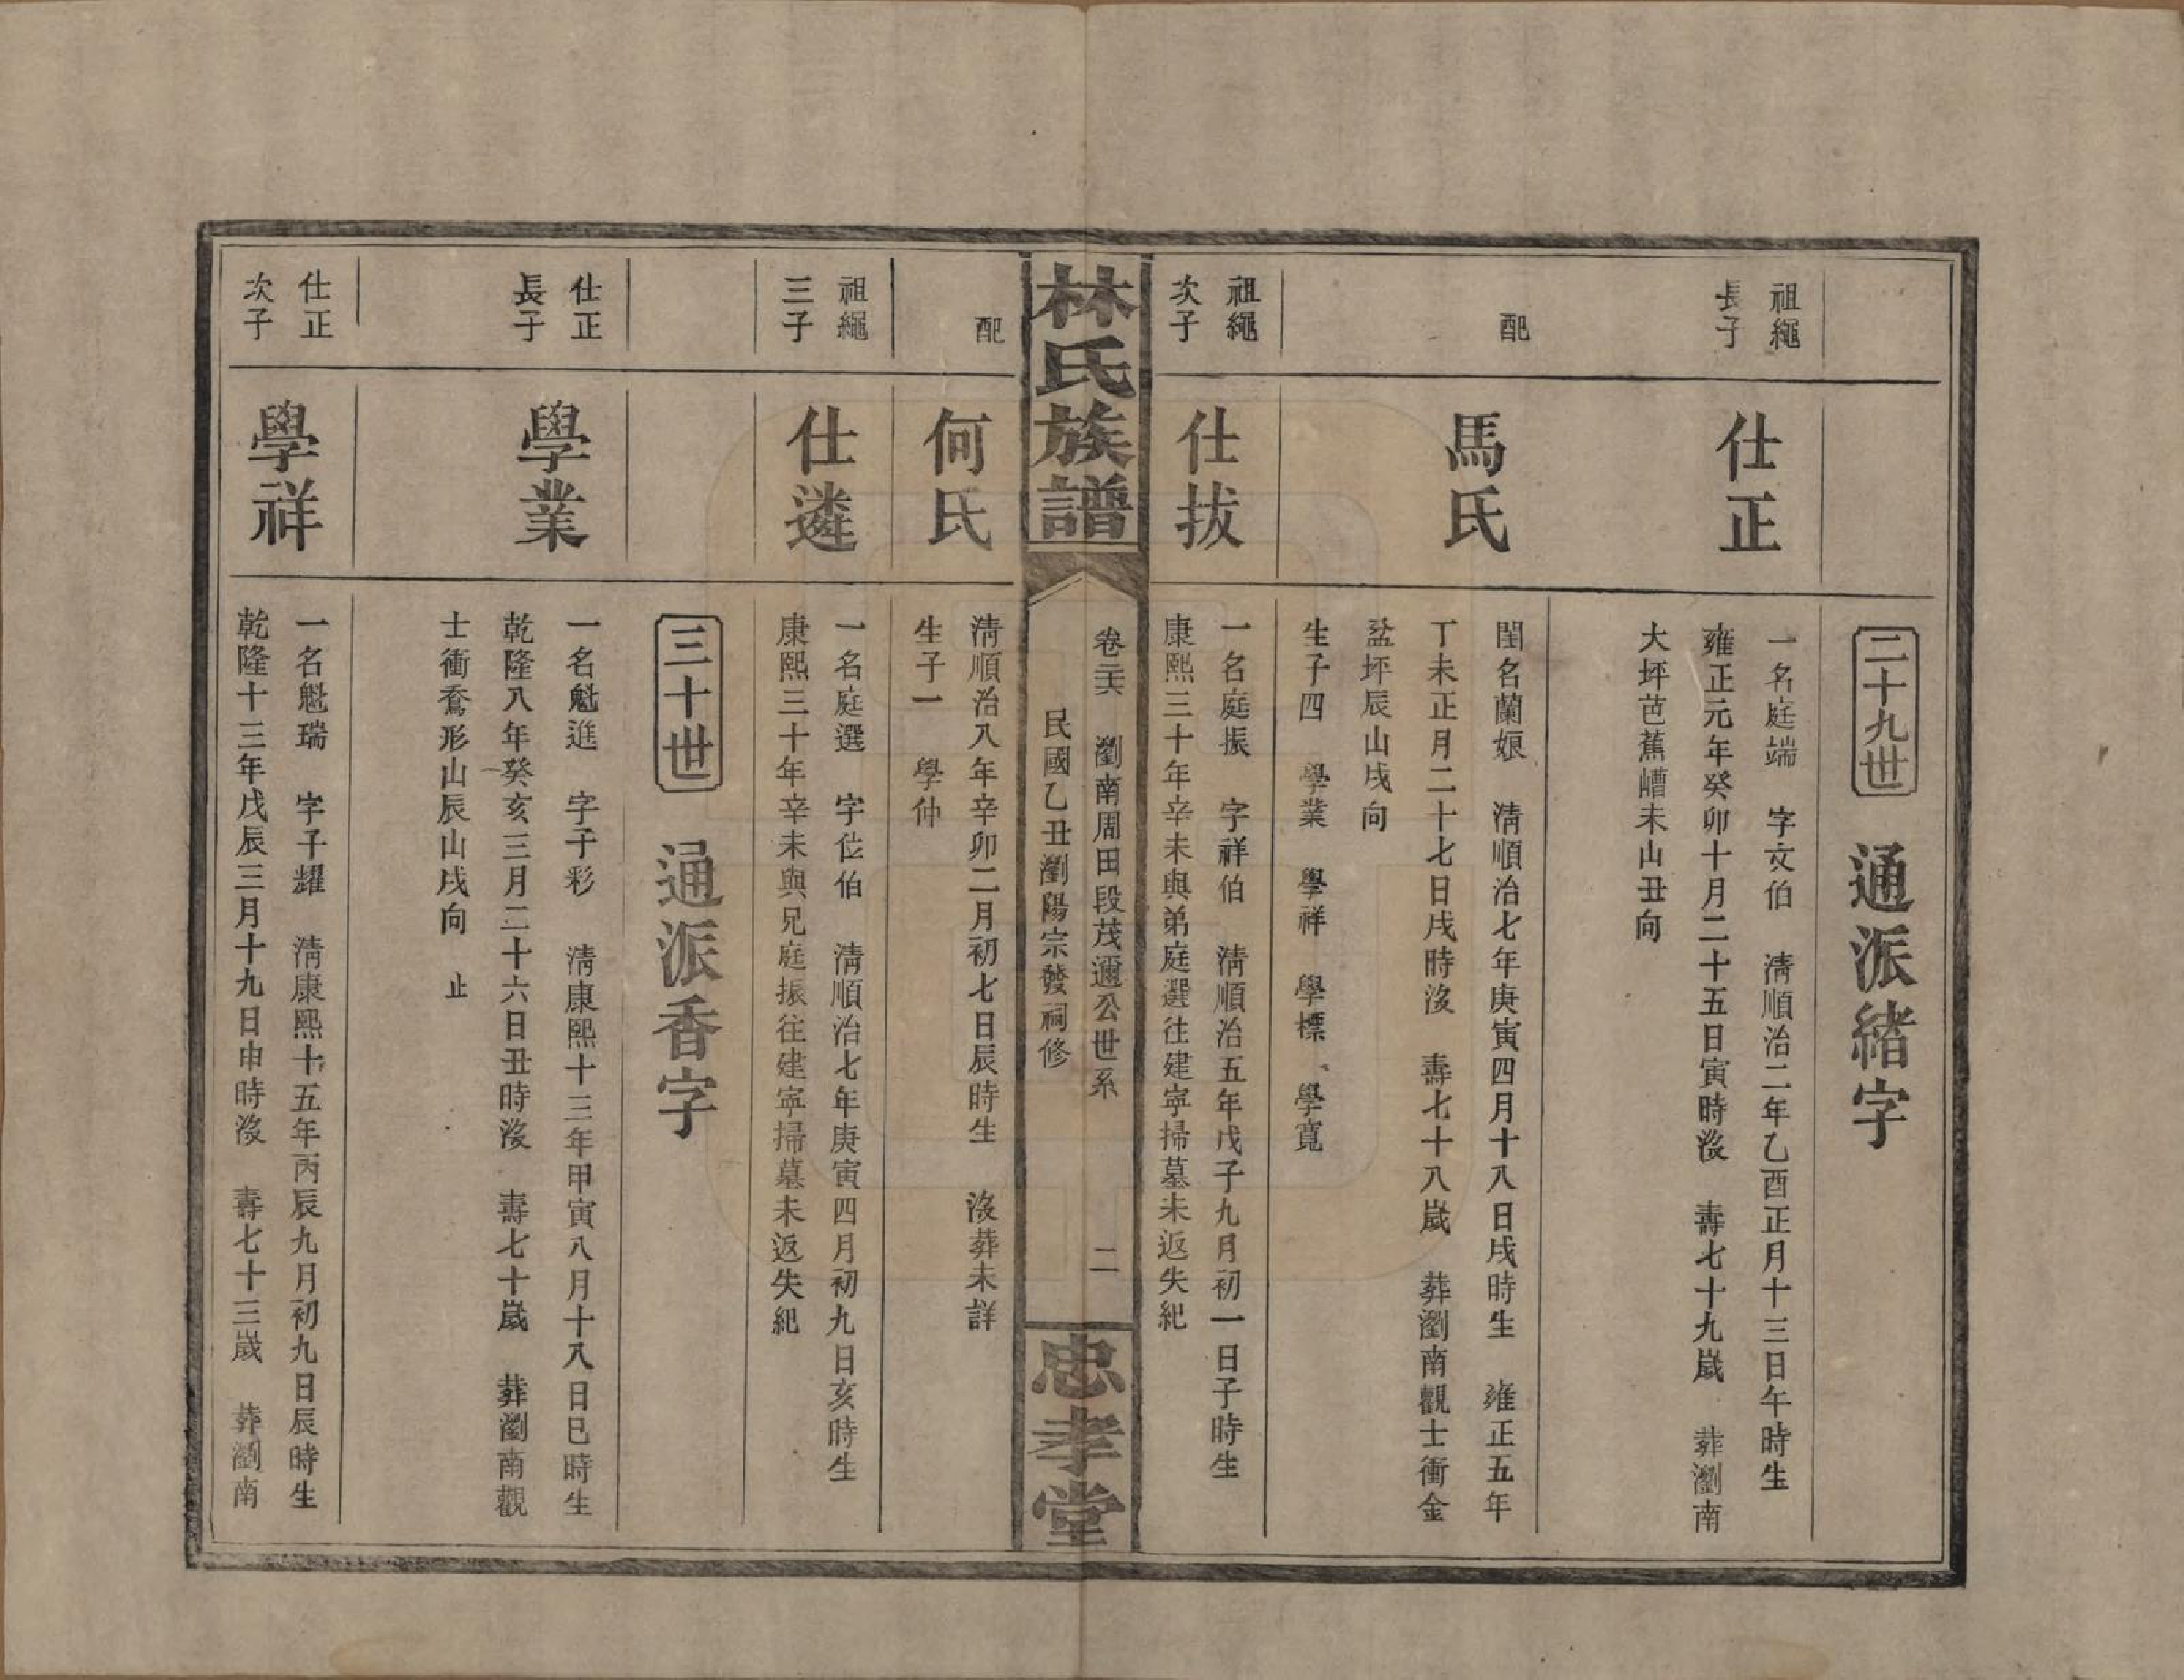 二十九世　通派緒字
祖繩
長子
仕正
一名庭端　字文伯　清順治二年乙酉正月十三日午時生
雍正元年癸卯十月二十五日寅時沒　壽七十九歲　葬瀏南
大坪芭蕉嶆未山丑向
配
馬氏
閨名蘭娘　清順治七年庚寅四月十八日戌時生　雍正五年
丁未正月二十七日戌時沒　壽七十八歲　葬瀏南觀士衝金
盆坪辰山戌向
生子四　學業　學祥　學標　學寬
祖繩
次子
仕拔
一名庭振　字祥伯　清順治五年戊子九月初一日子時生
康熙三十年辛未與弟庭選往建寧掃墓未返失紀
林氏族譜
卷三六　瀏南周田段茂邇公世系　二
民國乙丑瀏陽宗發祠修
忠孝堂
配
何氏
清順治八年辛卯二月初七日辰時生　沒葬未詳
生子一　學仲
祖繩
三子
仕遴
一名庭選　字位伯　清順治七年庚寅四月初九日亥時生
康熙三十年辛未與兄庭振往建寧掃墓未返失紀
三十世　通派香字
仕正
長子
學業
一名魁進　字子彩　清康熙十三年甲寅八月十八日巳時生
乾隆八年癸亥三月二十六日丑時沒　壽七十歲　葬瀏南觀
士衝鴌形山辰山戌向　止
仕正
次子
學祥
一名魁瑞　字子耀　清康熙十五年丙辰九月初九日辰時生
乾隆十三年戊辰三月十九日申時沒　壽七十三歲　葬瀏南